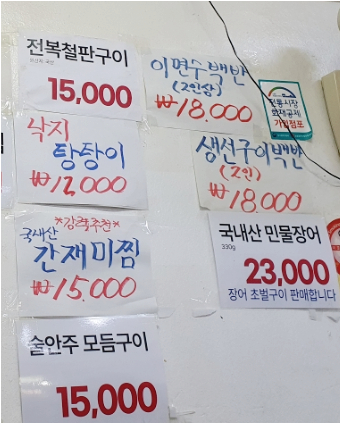 전복철판구이
15,000
낙지
탕탕이
₩12,000
*강력추천*
국내산
간재미찜
₩15,000
술안주 모듬구이
15,000
이면수백반
(2인상)
₩18,000
전통시장
화재공제
가입점포
생선구이백반
(2인)
₩18,000
국내산 민물장어
330g
23,000
장어 초벌구이 판매합니다